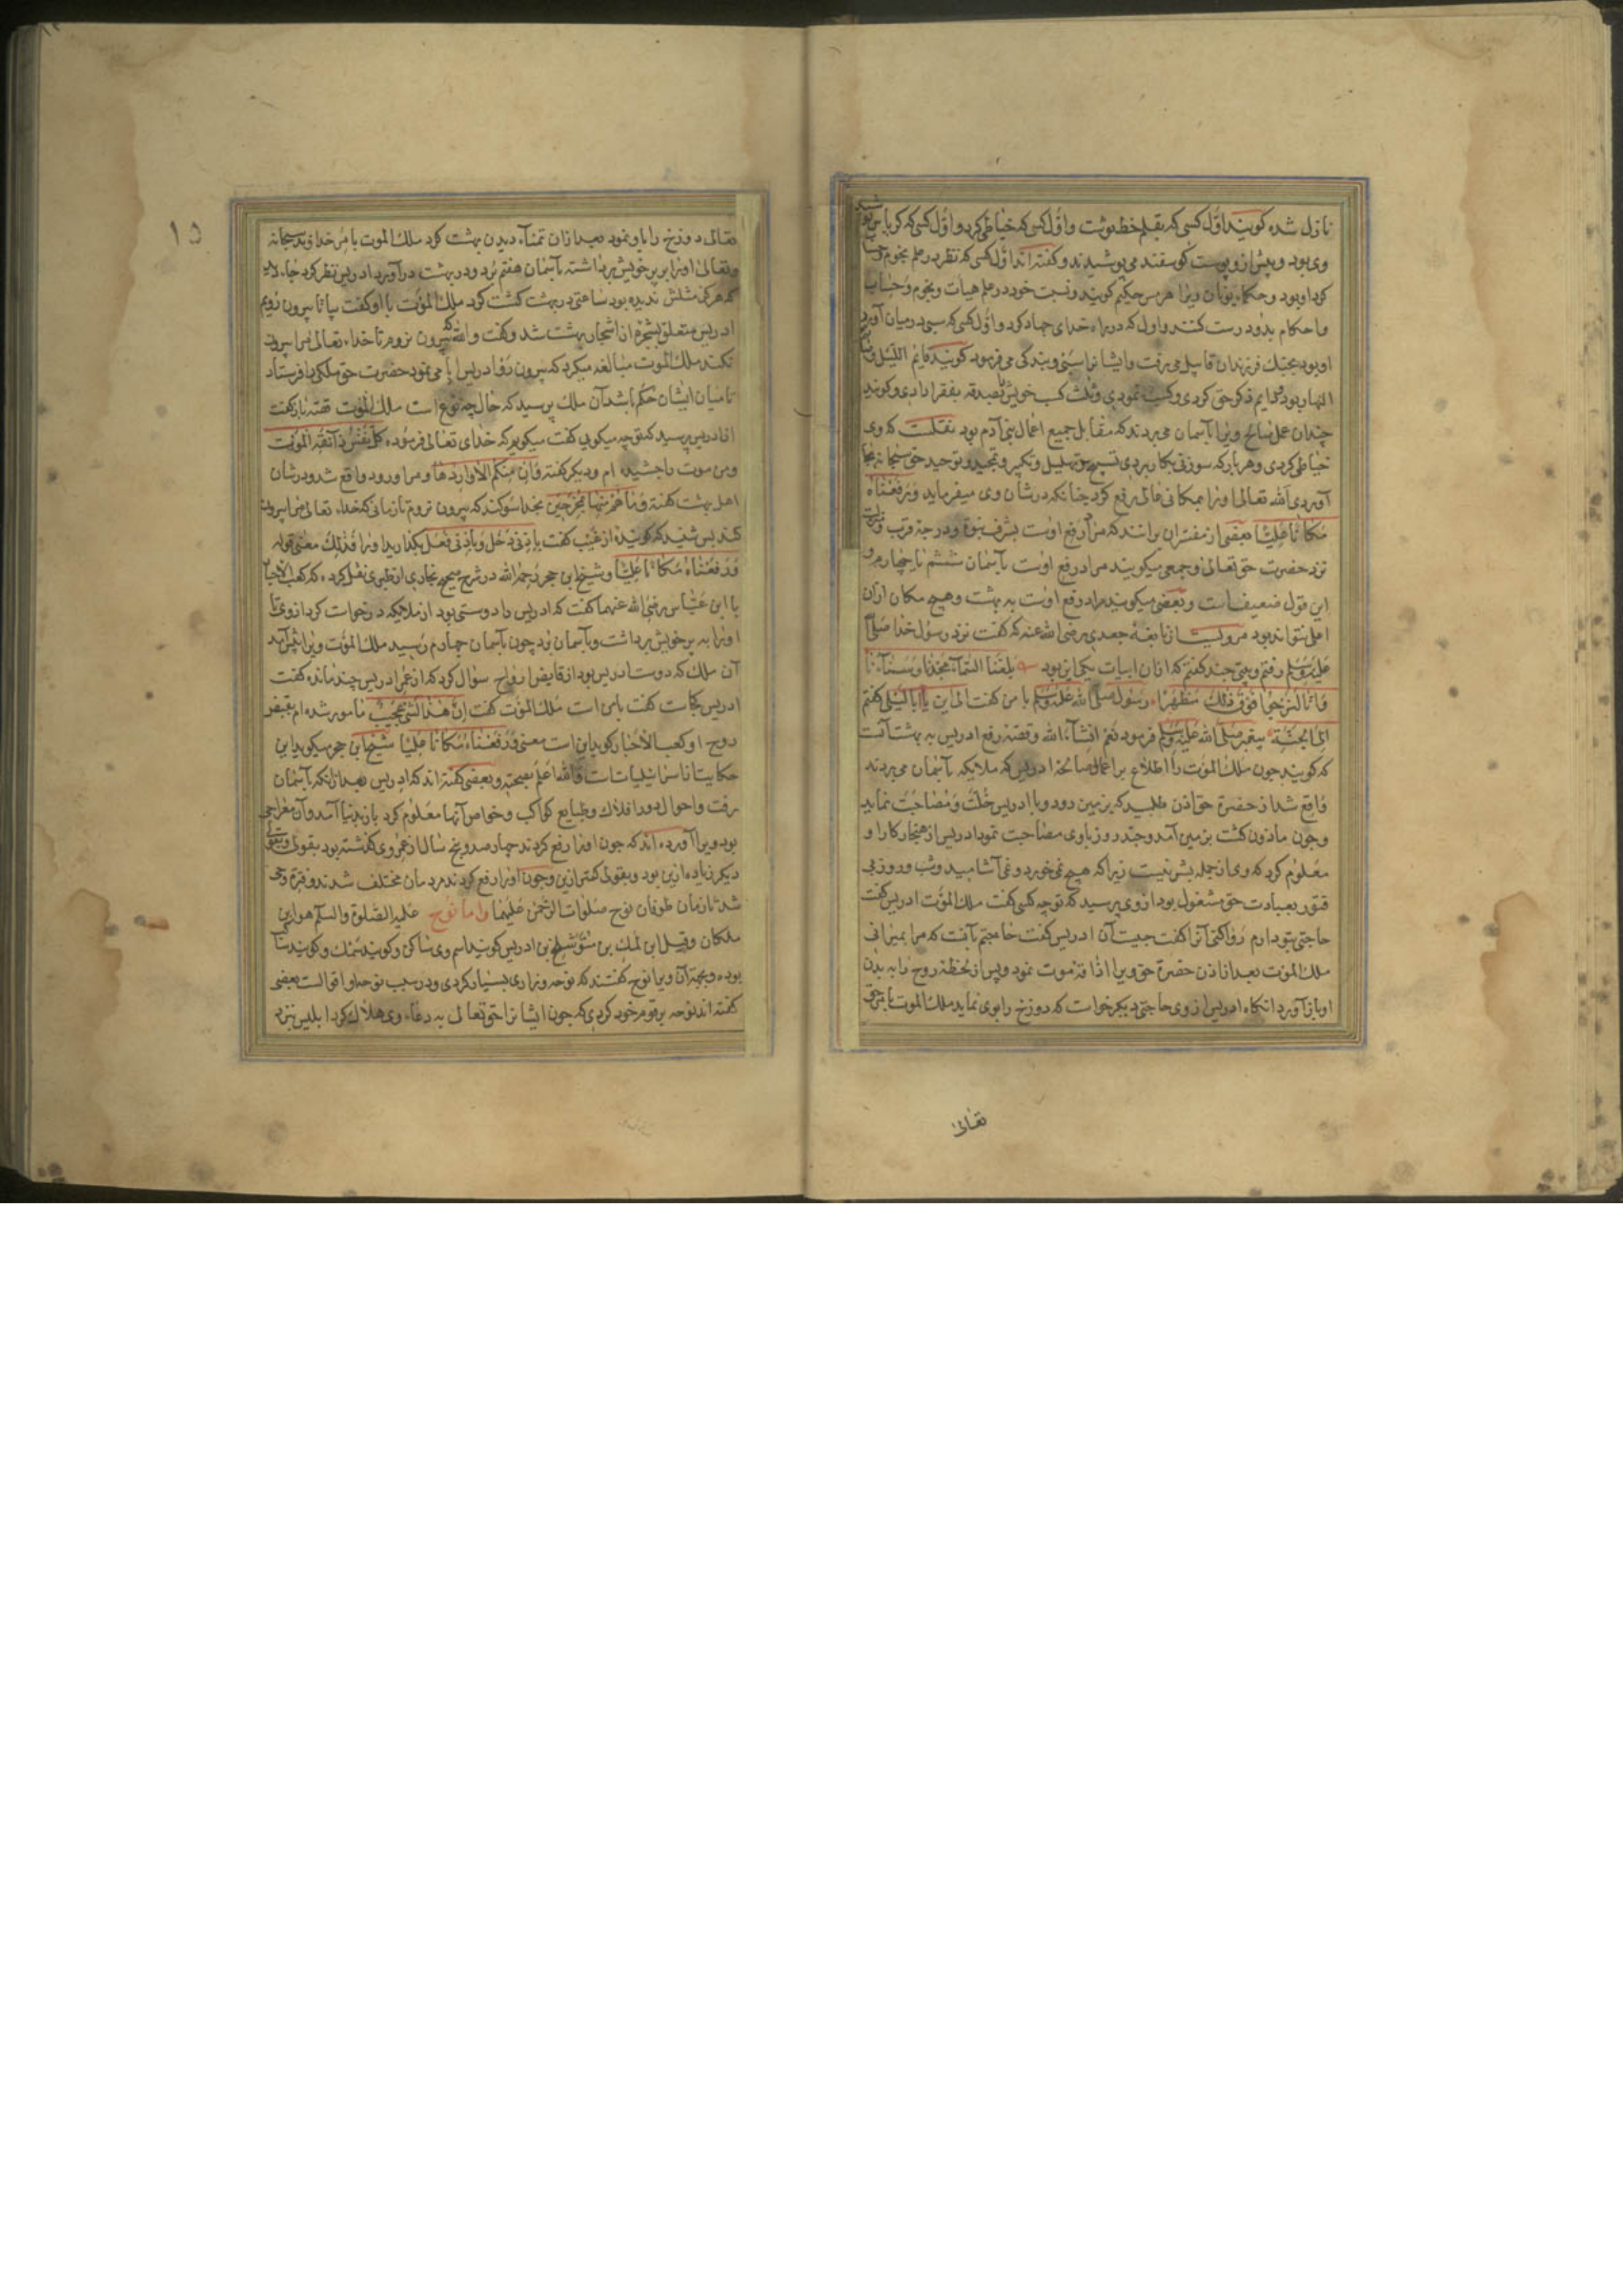 نازل شده کویند اوّل کسی که بقلم خط نوشت واوّل کسی که خیاطی کرد واوّل کسی که کرباس پوشید
وی بود وپیش از وپوست کوسفند می پوشیدند وکفته اند اوّل کسی که نظر در علم نجوم وحساب
کرد او بود وحکماء یونان ویرا هرمس حکیم کویند ونسبت خود در علم هیات ونجوم وحساب
واحکام بدو درست کنند واول که در راه خدای جهاد کرد واوّل کسی که سبی در میان آورد
او بود بجنك فرزندان قابیل می رفت وایشانرا سبی وبندکی می فرمود کویند قایم اللیل و
النهار بود دایم ذکر حق کردی وکسب نمودی وثلث کسب خویش تصدقه بفقرا دادی وکویند
چندان عمل صالح ویرا بآسمان می بردند که مقابل جمیع اعمال بنی آدم بود نقلست که وی
خیاطی کردی وهر بار که سوزنی بکار بردی تسبیح وتهلیل وتکبیر وتمجید وتوحید حق سبحانه بجا
آوردی الله تعالی اورا بمکانی عالی رفع کرد چنانکه در شأن وی میفرماید ورفعناه
مکانا علیّا بعضی از مفسّران برانند که مراد رفع اوست بشرف نبوّة ودرجهٔ قرب ومنزلت
نزد حضرت حق تعالی وجمعی میکویند مراد رفع اوست بآسمان ششم یا چهارم و
این قول ضعیف است وبعضی میکویند مراد رفع اوست به بهشت وهیچ مکان ازان
اعلی نتواند بود مرویست از نابغهٔ جعدی رضی الله عنه که کفت نزد رسول خدا صلّی
علیه وسلّم رفتم وبیتی چند کفتم که ازان ابیات یکی این بود بلغنا السّماء مجدنا وسناءنا
وانّا لنرجوا فوق ذلك مظهرا رسول صلّی الله علیه وسلّم با من کفت الی این یا ابا لیلی کفتم
الی الجنّة پیغمبر صلّی الله علیه وسلّم فرمود نعم انشاء الله وقصّهٔ رفع ادریس به بهشت آنست
که کویند چون ملك الموت را اطلاع بر اعمال صالحهٔ ادریس که ملایکه بآسمان می بردند
واقع شد از حضرة حق اذن طلبید که بزمین رود وبا ادریس خلّت ومصاحبت نماید
وچون ماذون کشت بزمین آمد وچند روز باوی مصاحبت نمود ادریس از هنجار کار او
معلوم کرد که وی از جمله بشر نیست زیراکه هیچ نمی خورد ونمی آشامید وشب وروز بی
فتور بعبادت حق مشغول بود ازوی پرسید که تو چه کسی کفت ملك الموت ادریس کفت
حاجتی بتو دارم روا کنی آنرا کفت چیست آن ادریس کفت حاجتم آنست که مرا بمیرانی
ملك الموت بعد از اذن حضرة حق ویرا اذاقهٔ موت نمود وپس از لحظهٔ روح را به بدن
او باز آورد انکاه ادریس ازوی حاجتی دیکر خواست که دوزخ را بوی نماید ملك الموت بامر حق
تعالی
۱۵
تعالی دوزخ را باو نمود بعد ازان تمنّاء دیدن بهشت کرد ملك الموت بامر خداوند سبحانه
وتعالی اورا بر پر خویش برداشته بآسمان هفتم برد ودر بهشت درآورد ادریس نظر کرد
که هرکز مثلش ندیده بود ساعتی در بهشت کشت کرد ملك الموت با او کفت بیا تا بیرون رویم
ادریس متعلق بشجرهٔ از اشجار بهشت شد وکفت والله که بیرون نروم تا خداء تعالی مرا بیرون
نکند ملك الموت مبالغه میکرد که بیرون رو وادریس ابا می نمود حضرت حق ملکی را فرستاد
تا میان ایشان حکم باشد آن ملك پرسید که حال چه نوع است ملك الموت قصّه باز کفت
از ادریس پرسید که تو چه میکویی کفت میکویم که خدای تعالی فرموده کلّ نفس ذائقة الموت
ومن موت را چشیده ام ودیکر کفته وان منکم الا واردها ومرا ورود واقع شد ودر شان
اهل بهشت کفته وما هم منها بمخرجین بخدا سوکند که بیرون نروم تا زمانی که خداء تعالی مرا بیرون
کند پس شنید که کویندهٔ از غیب کفت باذنی دخل وباذنی فعل بکذارید اورا فذلك معنی قوله
ورفعناه مکانا علیّا وشیخ ابن حجر رحمه الله در شرح صحیح بخاری از طبری نقل کرده که کعب الاحبار
با ابن عبّاس رضی الله عنهما کفت که ادریس را دوستی بود از ملایکه درخواست کرد ازوی تا
اورا به پر خویش برداشت وبآسمان برد چون بآسمان چهارم رسید ملك الموت ویرا پیش آمد
آن ملك که دوست ادریس بود از قابض ارواح سوال کرد که از عمر ادریس چند مانده کفت
ادریس کجاست کفت با من است ملك الموت کفت انّ هذا لشیء عجیب مامور شده ام بقبض
روح او کعب الاحبار کوید این است معنی ورفعناه مکانا علیّا شیخ ابن حجر میکوید این
حکایت از اسرائیلیاتست والله اعلم بصحّته وبعضی کفته اند که ادریس بعد ازانکه بآسمان
رفت واحوال دور افلاك وطبایع کواکب وخواص آنها معلوم کرد باز بدنیا آمد وآن معراجی
بود ویرا آورده اند که چون اورا رفع کردند چهارصد وپنج سال از عمر وی کذشته بود بقولی وبقولی
دیکر زیاده ازین بود وبقولی کمتر ازین وچون اورا رفع کردند مردمان مختلف شدند وفترة وحی
شد تا زمان طوفان نوح صلوات الرحمن علیهما وامّا نوح علیه الصّلوة والسلّم هو ابن
ملکان وقیل ابن لمك بن متّوشلخ بن ادریس کویند اسم وی شاکر وکویند
بوده وبجهة آن ویرا نوح کفتند که نوحه وزاری بسیار کردی ودر سبب نوحهٔ او اقوالست بعضی
کفته اند نوحه بر قوم خود کردی که چون ایشانرا حق تعالی به دعاء وی هلاك کرد ابلیس نزد